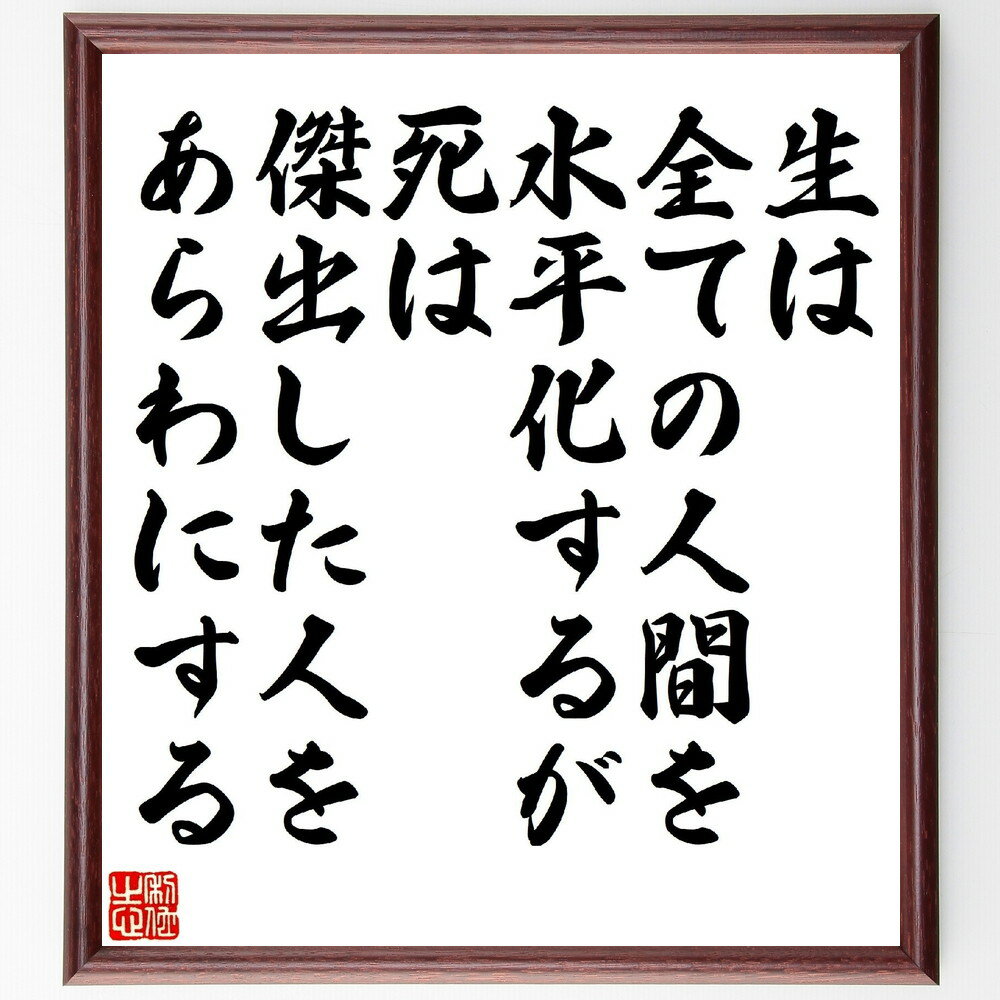 生は
全ての人間を
水平化するが
死は
傑出した人を
あらわにする